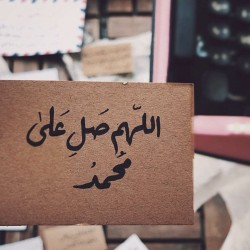 اللّهم صَلِ عَلىٰ
مُحمدُ